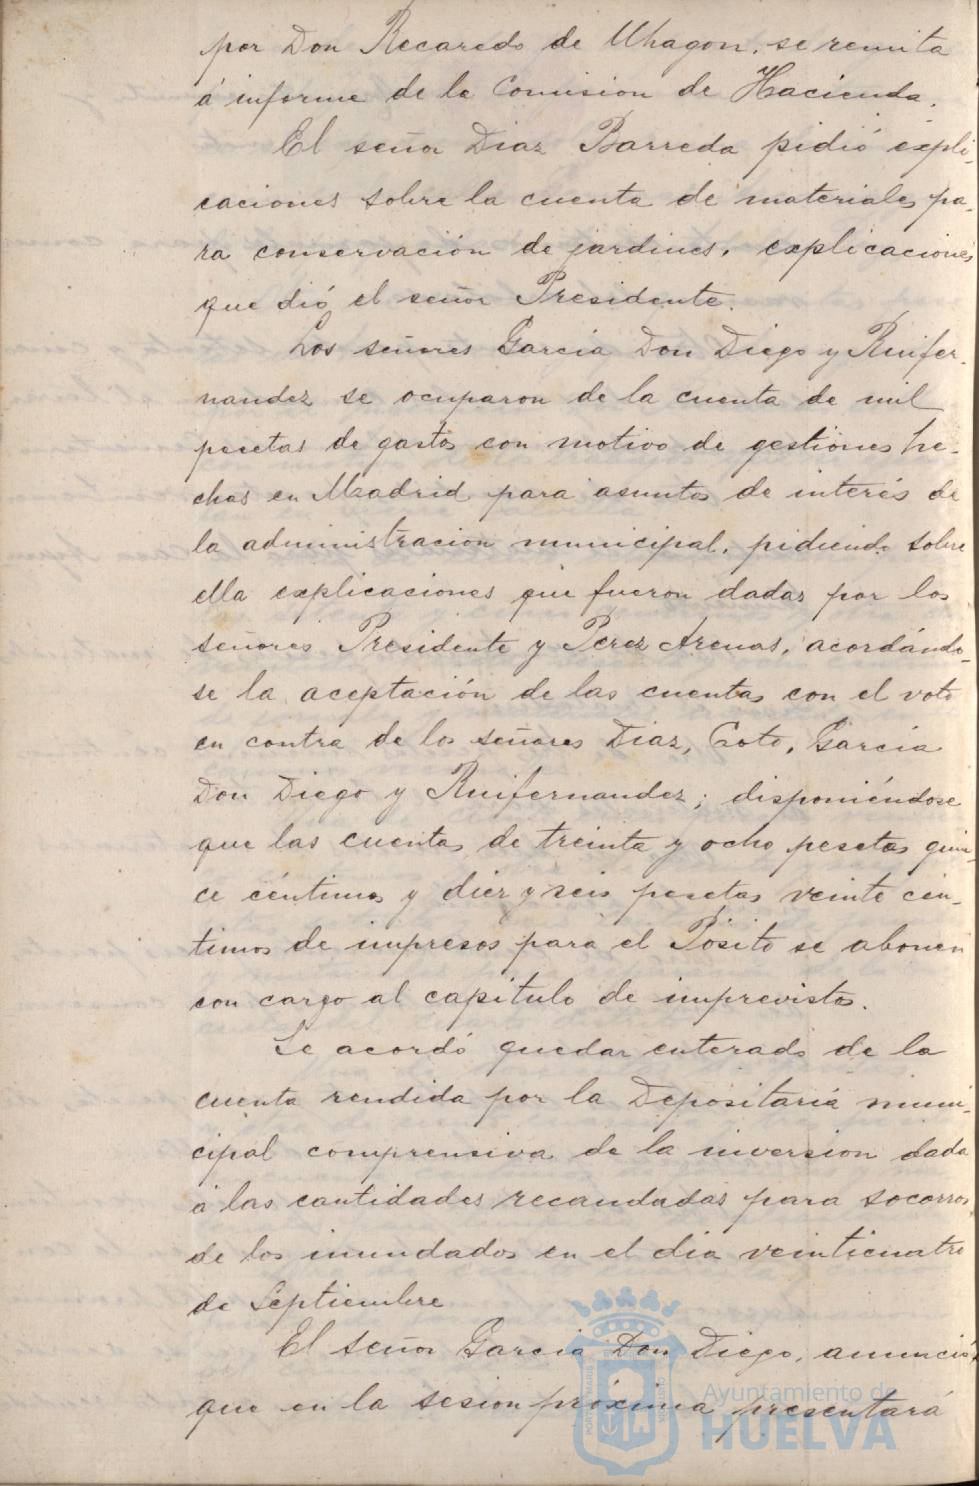 por Don Recaredo de Uhagon, se remita
á informe de la Comision de Hacienda.
El señor Diaz Barreda pidió expli-
caciones sobre la cuenta de materiales pa-
ra conservación de jardines, explicaciones
que dió el señor Presidente.
Los señores Garcia Don Diego y Ruifer-
nandez se ocuparon de la cuenta de mil
pesetas de gastos con motivo de gestiones he-
chas en Madrid para asuntos de interés de
la administracion municipal, pidiendo sobre
ella explicaciones que fueron dadas por los
señores Presidente y Perez Arenas, acordándo-
se la aceptación de las cuentas con el voto
en contra de los señores Diaz, Coto, Garcia
Don Diego y Ruifernandez; disponiéndose
que las cuentas de treinta y ocho pesetas quin-
ce céntimos y diez y seis pesetas veinte cén-
timos de impresos para el Pósito se abonen
con cargo al capitulo de imprevistos.
Se acordó quedar enterado de la
cuenta rendida por la Depositaria muni-
cipal comprensiva de la inversion dada
á las cantidades recaudadas para socorros
de los inundados en el dia veinticuatro
de Septiembre
El señor Garcia Don Diego, anunció
que en la sesion próxima presentará
Ayuntamiento de
HUELVA